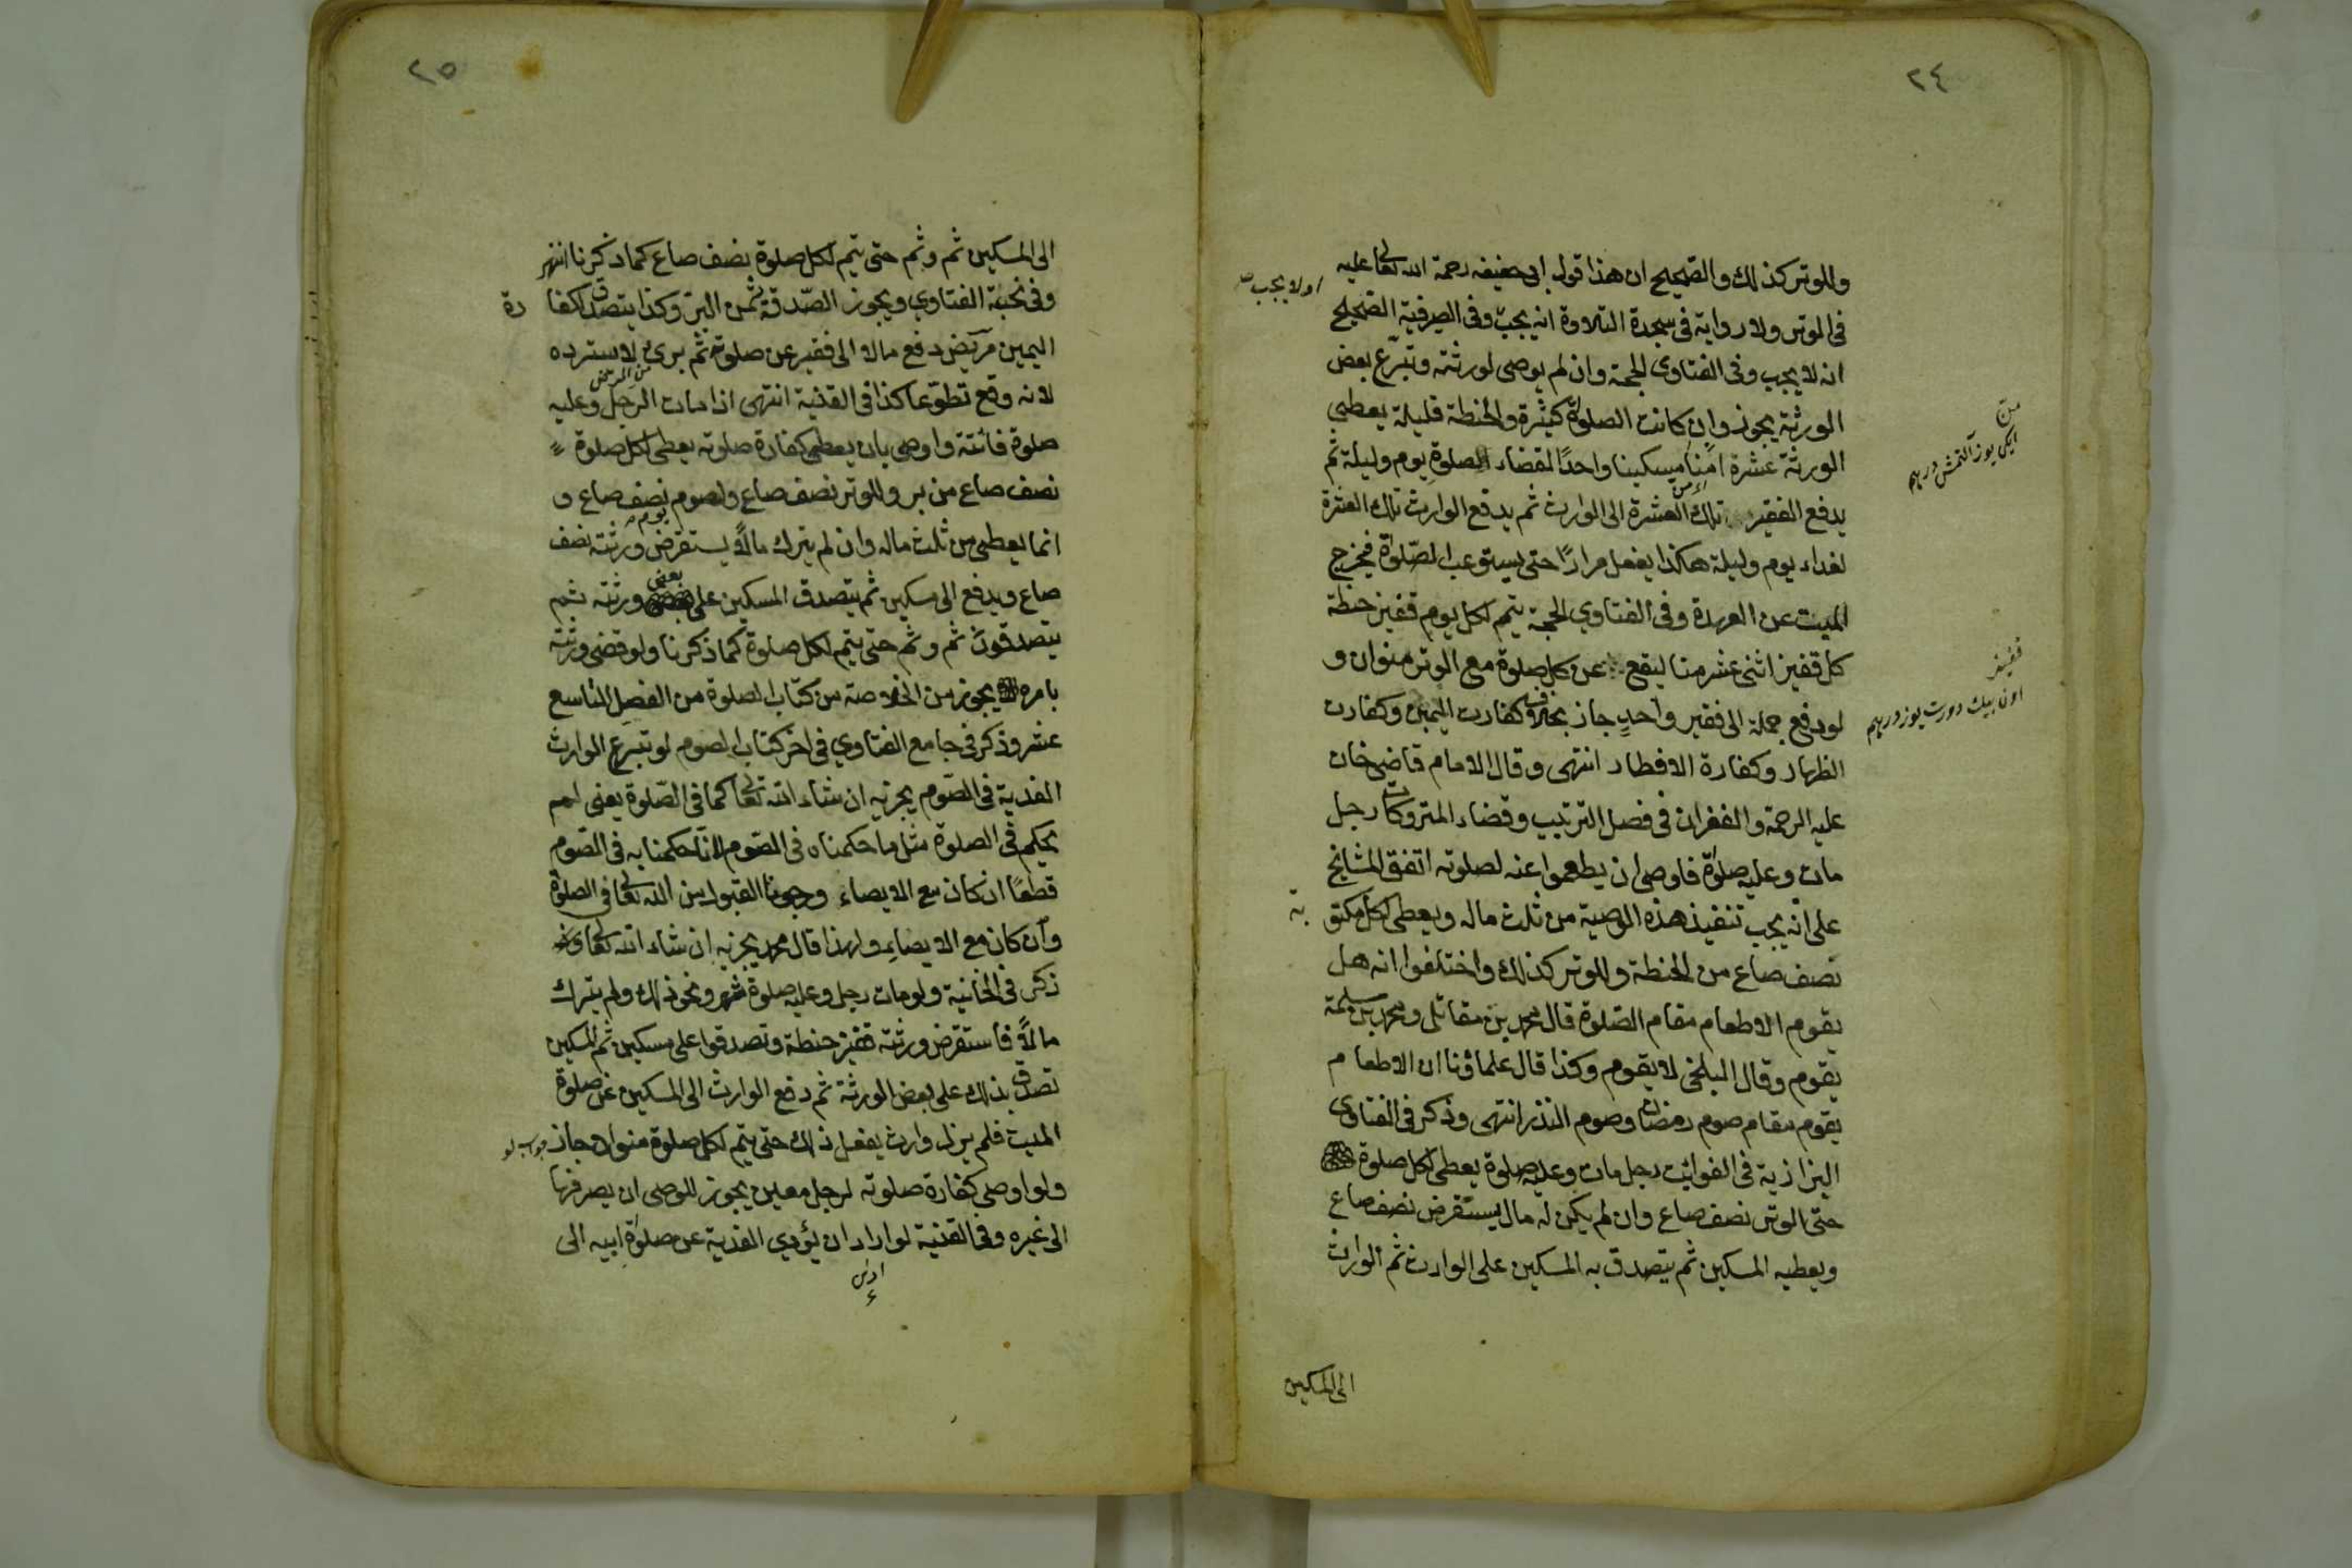 ٢٤
وللوتر كذلك والصحيح ان هذا قول ابى حنيفه رحمة الله تعالى عليه
فى الوتر ولا رواية فى سجدة التلاوة انه يجب وفى الصيرفية الصحيح
اولا يجب
انه لا يجب وفى الفتاوى الحجة وان لم يوصى لورثته وتبرّع بعض
الورثة يجوز وان كانت الصلوة كثيرة والحنطة قليلة يعطى
الورثة عشرة امنا مسكينا واحدًا لقضاء الصلوة يوم وليلة ثم
من
ايكى يوز آلتمش درهم
يدفع الفقير تلك العشرة الى الوارث ثم يدفع الوارث تلك العشرة
لغداء يوم وليلة هكذا يفعل مرارًا حتى يستوعب الصّلوة فيخرج
الميت عن العهدة وفى الفتاوي الحجة يتم لكل يوم قفيز حنطة
كل قفيز اثنى عشر منا ليقع عن كل صلوة مع الوتر منوان و
قفيز
اون بيك دورت يوز درهم
لو دفع جملة الى فقير واحدٍ جاز بخلاف كفارت اليمين وكفارت
الظهار وكفارة الافطار انتهى وقال الامام قاضى خان
عليه الرحمة والغفران فى فصل الترتيب وقضاء المتروكات رجل
مات وعليه صلوة فاوصى ان يطعموا عنه لصلوته اتفق المشايخ
على انه يجب تنفيذ هذه الوصية من ثلث ماله ويعطى لكل مكتو
بة
نصف صاع من الحنطة وللوتر كذلك واختلفوا انه هل
يقوم الاطعام مقام الصّلوة قال محمد بن مقاتل ومحمد بن سلمة
يقوم وقال البلخى لا يقوم وكذا قال علماؤنا ان الاطعام
يقوم مقام صوم رمضان وصوم النذر انتهى وذكر فى الفتاوى
البزازية فى الفوائت رجل مات وعليه صلوة يعطى لكل صلوة
حتى الوتر نصف صاع وان لم يكن له مال يستقرض نصف صاع
ويعطيه المسكين ثم يتصدق به المسكين على الوارث ثم الوارث
الى المسكين
٢٥
الى المسكين ثم وثم حتى يتم لكل صلوة نصف صاع كما ذكرنا انتهى
وفى نخبة الفتاوي ويجوز الصّدقة ثمن البرّ وكذا يتصدق لكفا
رة
اليمين مريض دفع مالا الى فقير عن صلوته ثم برئ لا سترده
من المرض
لانه وقع تطوّعا كذا فى القنية انتهى اذا مات الرجل وعليه
صلوة فائتة واوصى بان يعطى كفارة صلوته يعطى لكل صلوة
نصف صاع من بر وللوتر نصف صاع ولصوم يوم نصف صاع و
انما يعطى من ثلث ماله وان لم يترك مالاً يستقرض ورثته نصف
صاع ويدفع الى مسكين ثم يتصدق المسكين على بعض ورثته ثم
يتصدقون ثم وثم حتى يتم لكل صلوة كما ذكرنا ولو قضى ورثته
بامره يجوز من الخلاصة من كتاب الصلوة من الفصل التاسع
عشر وذكر فى جامع الفتاوي فى اخر كتاب الصوم لو تبرع الوارث
الفدية فى الصّوم يجزيه ان شاء الله تعالى كما فى الصّلوة يعنى لم
يحكم فى الصلوة مثل ما حكمناه فى الصّوم لانا حكمنا به فى الصّوم
قطعًا ان كان مع الايصاء ورجونا القبول من الله تعالى فى الصلوة
وان كان مع الايصاء ولهذا قال محمد يجزيه ان شاء الله تعالى
ذكر فى الخانية ولو مات رجل وعليه صلوة شهر ونحو ذلك ولم يترك
مالاً فاستقرض ورثته قفيز حنطة وتصدقوا على مسكين ثم المسكين
تصدق بذلك على بعض الورثة ثم دفع الوارث الى المسكين عن صلوة
الميت فلم يزل وارث يفعل ذلك حتى يتم لكل صلوة منوان جاز
جواب لو
ولو اوصى كفارة صلوته لرجل معين يجوز للوصى ان يصرفها
الى غيره وفى القنية لو اراد ان يؤدي الفدية عن صلوة ابيه الى